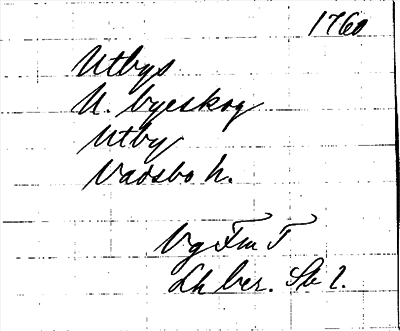 1760
Utbys
U. byeskog
Utby
Vadsbo h.
Vg Fm T
Lh ber. Sb 2.